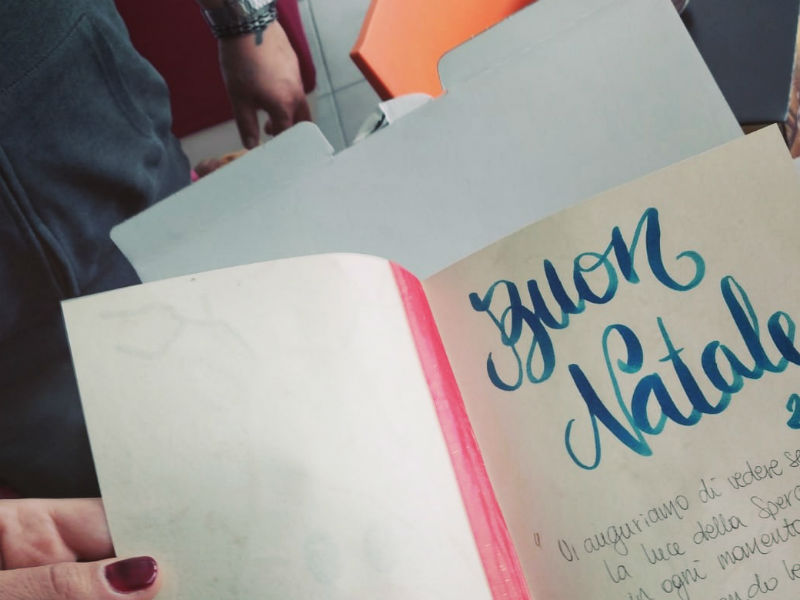 Buon
Natale
2
" Vi auguriamo di vedere
la luce della
in ogni momento